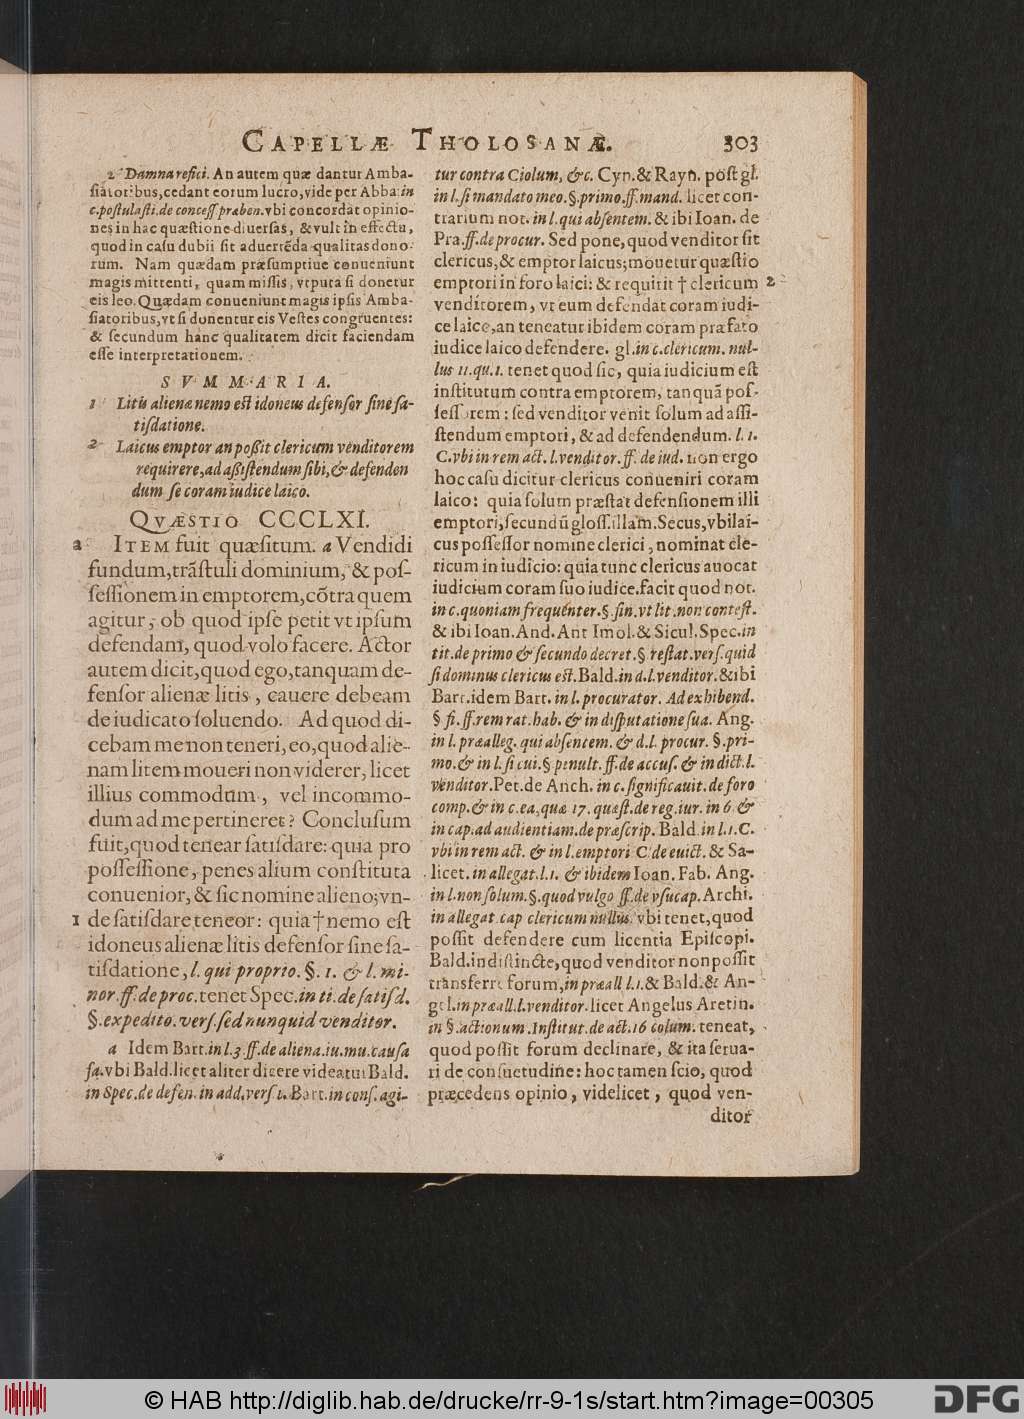 CAPELLÆ THOLOSANÆ. 303
2 Damna refici. An autem quæ dantur Amba-
siatoribus, cedant eorum lucro, vide per Abba. in
c. postulasti. de concess. præben. vbi concordat opinio-
nes in hac quæstione diuersas, & vult in effectu,
quod in casu dubii sit aduertẽda qualitas dono-
rum. Nam quædam præsumptiue conueniunt
magis mittenti, quam missis, vtputa si donetur
eis leo. Quædam conueniunt magis ipsis Amba-
siatoribus, vt si donentur eis Vestes congruentes:
& secundum hanc qualitatem dicit faciendam
esse interpretationem.
SVMMARIA.
1 Litis alienæ nemo est idoneus defensor sine sa-
tisdatione.
2 Laicus emptor an possit clericum venditorem
requirere, ad assistendum sibi, & defenden
dum se coram iudice laico.
QVÆSTIO CCCLXI.
a ITEM fuit quæsitum. a Vendidi
fundum, trãstuli dominium, & pos-
sessionem in emptorem, cõtra quem
agitur, ob quod ipse petit vt ipsum
defendam, quod volo facere. Actor
autem dicit, quod ego, tanquam de-
fensor alienæ litis, cauere debeam
de iudicato soluendo. Ad quod di-
cebam me non teneri, eo, quod alie-
nam litem moueri non viderer, licet
illius commodum, vel incommo-
dum ad me pertineret? Conclusum
fuit, quod tenear satisdare: quia pro
possessione, penes alium constituta
conuenior, & sic nomine alieno; vn-
1 de satisdare teneor: quia † nemo est
idoneus alienæ litis defensor sine sa-
tisdatione, l. qui proprio. §. 1. & l. mi-
nor. ff. de proc. tenet Spec. in ti. de satisd.
§. expedito. vers. sed nunquid venditor.
a Idem Bart. in l. 3. ff. de aliena. iu. mu. causa
fa. vbi Bald. licet aliter dicere videatur Bald.
in Spec. de defen. in add. vers. 1. Bart. in cons. agi-
tur contra Ciolum, &c. Cyn. & Rayn. post gl.
in l. si mandato meo. §. primo. ff. mand. licet con-
trarium not. in l. qui absentem. & ibi Ioan. de
Pra. ff. de procur. Sed pone, quod venditor sit
clericus, & emptor laicus; mouetur quæstio
emptori in foro laici: & requirit † clericum 2
venditorem, vt eum defendat coram iudi-
ce laico, an teneatur ibidem coram præfato
iudice laico defendere. gl. in c. clericum. nul-
lus 11. qu. 1. tenet quod sic, quia iudicium est
institutum contra emptorem, tanquã pos-
sessorem: sed venditor venit solum ad assi-
stendum emptori, & ad defendendum. l. 1.
C. vbi in rem act. l. venditor. ff. de iud. non ergo
hoc casu dicitur clericus conueniri coram
laico: quia solum præstat defensionem illi
emptori, secundũ gloss. illam. Secus, vbi lai-
cus possessor nomine clerici, nominat cle-
ricum in iudicio: quia tunc clericus auocat
iudicium coram suo iudice. facit quod not.
in c. quoniam frequenter. §. fin. vt lit. non contest.
& ibi Ioan. And. Ant Imol. & Sicul. Spec. in
tit. de primo & secundo decret. § restat. vers. quid
si dominus clericus est. Bald. in d. l. venditor. & ibi
Bart. idem Bart. in l. procurator. Ad exhibend.
§ si. ff. rem rat. hab. & in disputatione sua. Ang.
in l. præalleg. qui absentem. & d. l. procur. §. pri-
mo. & in l. si cui. § penult. ff. de accus. & in dict. l.
venditor. Pet. de Anch. in c. significauit. de foro
comp. & in c. ea, quæ 17. quæst. de reg. iur. in 6 &
in cap. ad audientiam. de præscrip. Bald. in l. 1. C.
vbi in rem act. & in l. emptori C de euict. & Sa-
licet. in allegat. l. 1. & ibidem Ioan. Fab. Ang.
in l. non solum. §. quod vulgo ff. de vsucap. Archi.
in allegat. cap clericum nullus. vbi tenet, quod
possit defendere cum licentia Episcopi.
Bald. indistincte, quod venditor non possit
transferre forum, in præall l. 1. & Bald. & An-
gel. in præall. l. venditor. licet Angelus Aretin.
in §. actionum. Institut. de act. 16 colum. teneat,
quod possit forum declinare, & ita serua-
ri de consuetudine: hoc tamen scio, quod
præcedens opinio, videlicet, quod ven-
ditor
© HAB http://diglib.hab.de/drucke/rr-9-1s/start.htm?image=00305
DFG